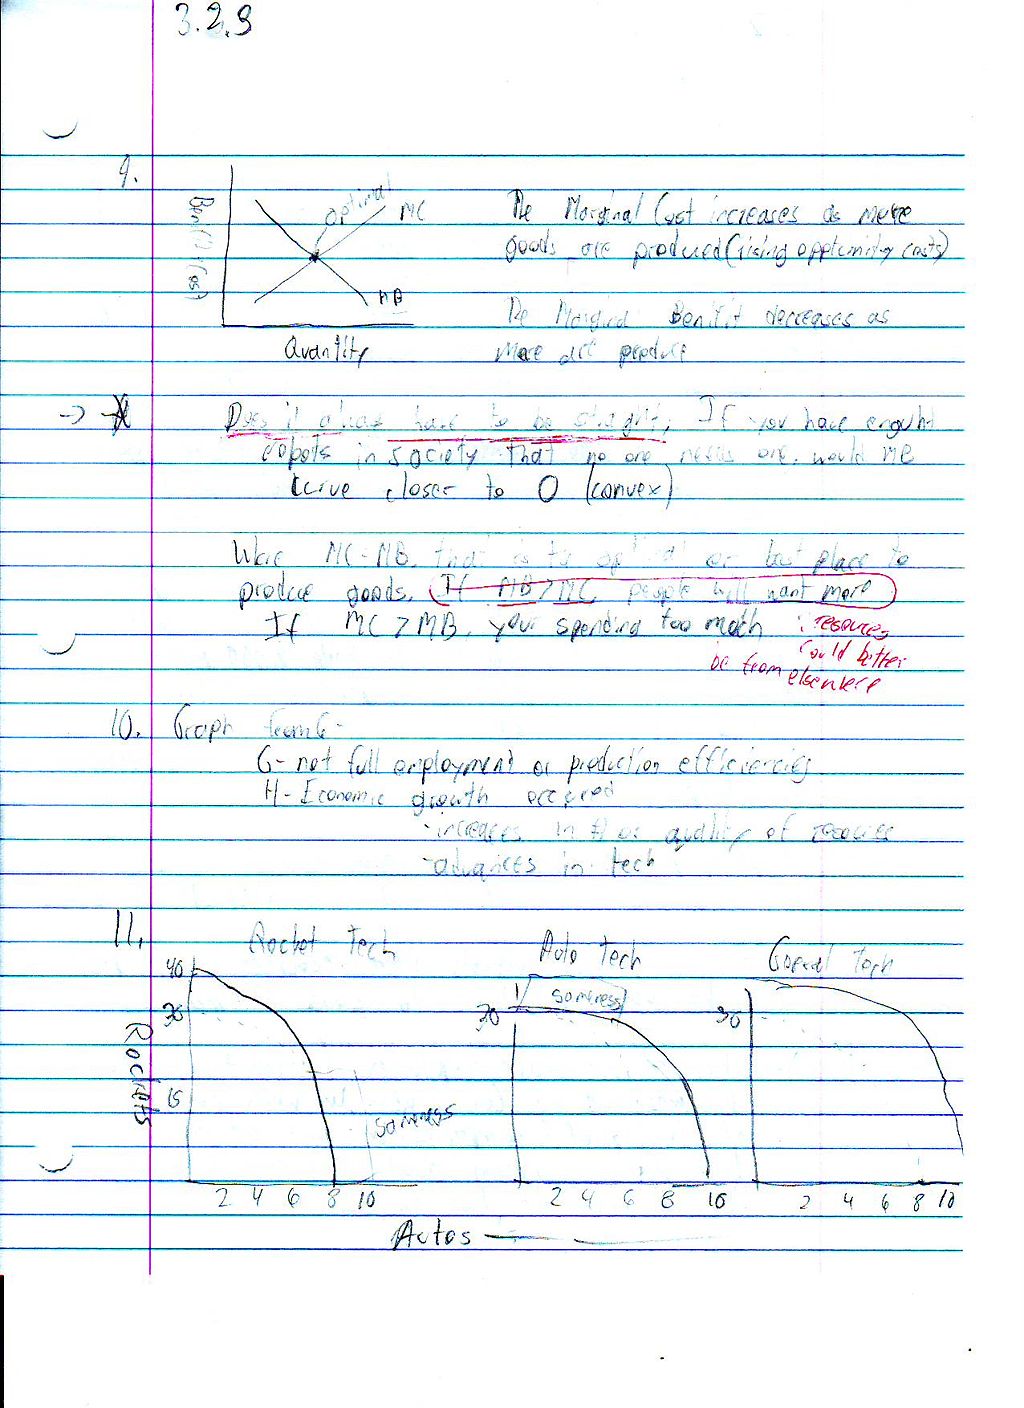 3.2.9
9.
Optimal
MC
MB
Quantity
The Marginal Cost increases as more
goods are produced (rising opportunity costs)
The Marginal Benifit decreases as
More are produce
Does it have to be straight, If you have
robots in society that no one needs one. would MB
curve closer to 0 (convex)
MC=MB. that is optimal or place to
produce goods. If MB>MC people will want more
If MC>MB. your spending too : resources
could better
be from elsewhere
10. Graph from 6-
G- not full employment or production
H- Economic growth
- increases in # or quality of
- advances in tech
11. Rocket Tech Auto tech Tech
40
30
15
Rockets
2 4 6 8 10
30
2 4 6 8 10
30
2 4 6 8 10
Autos